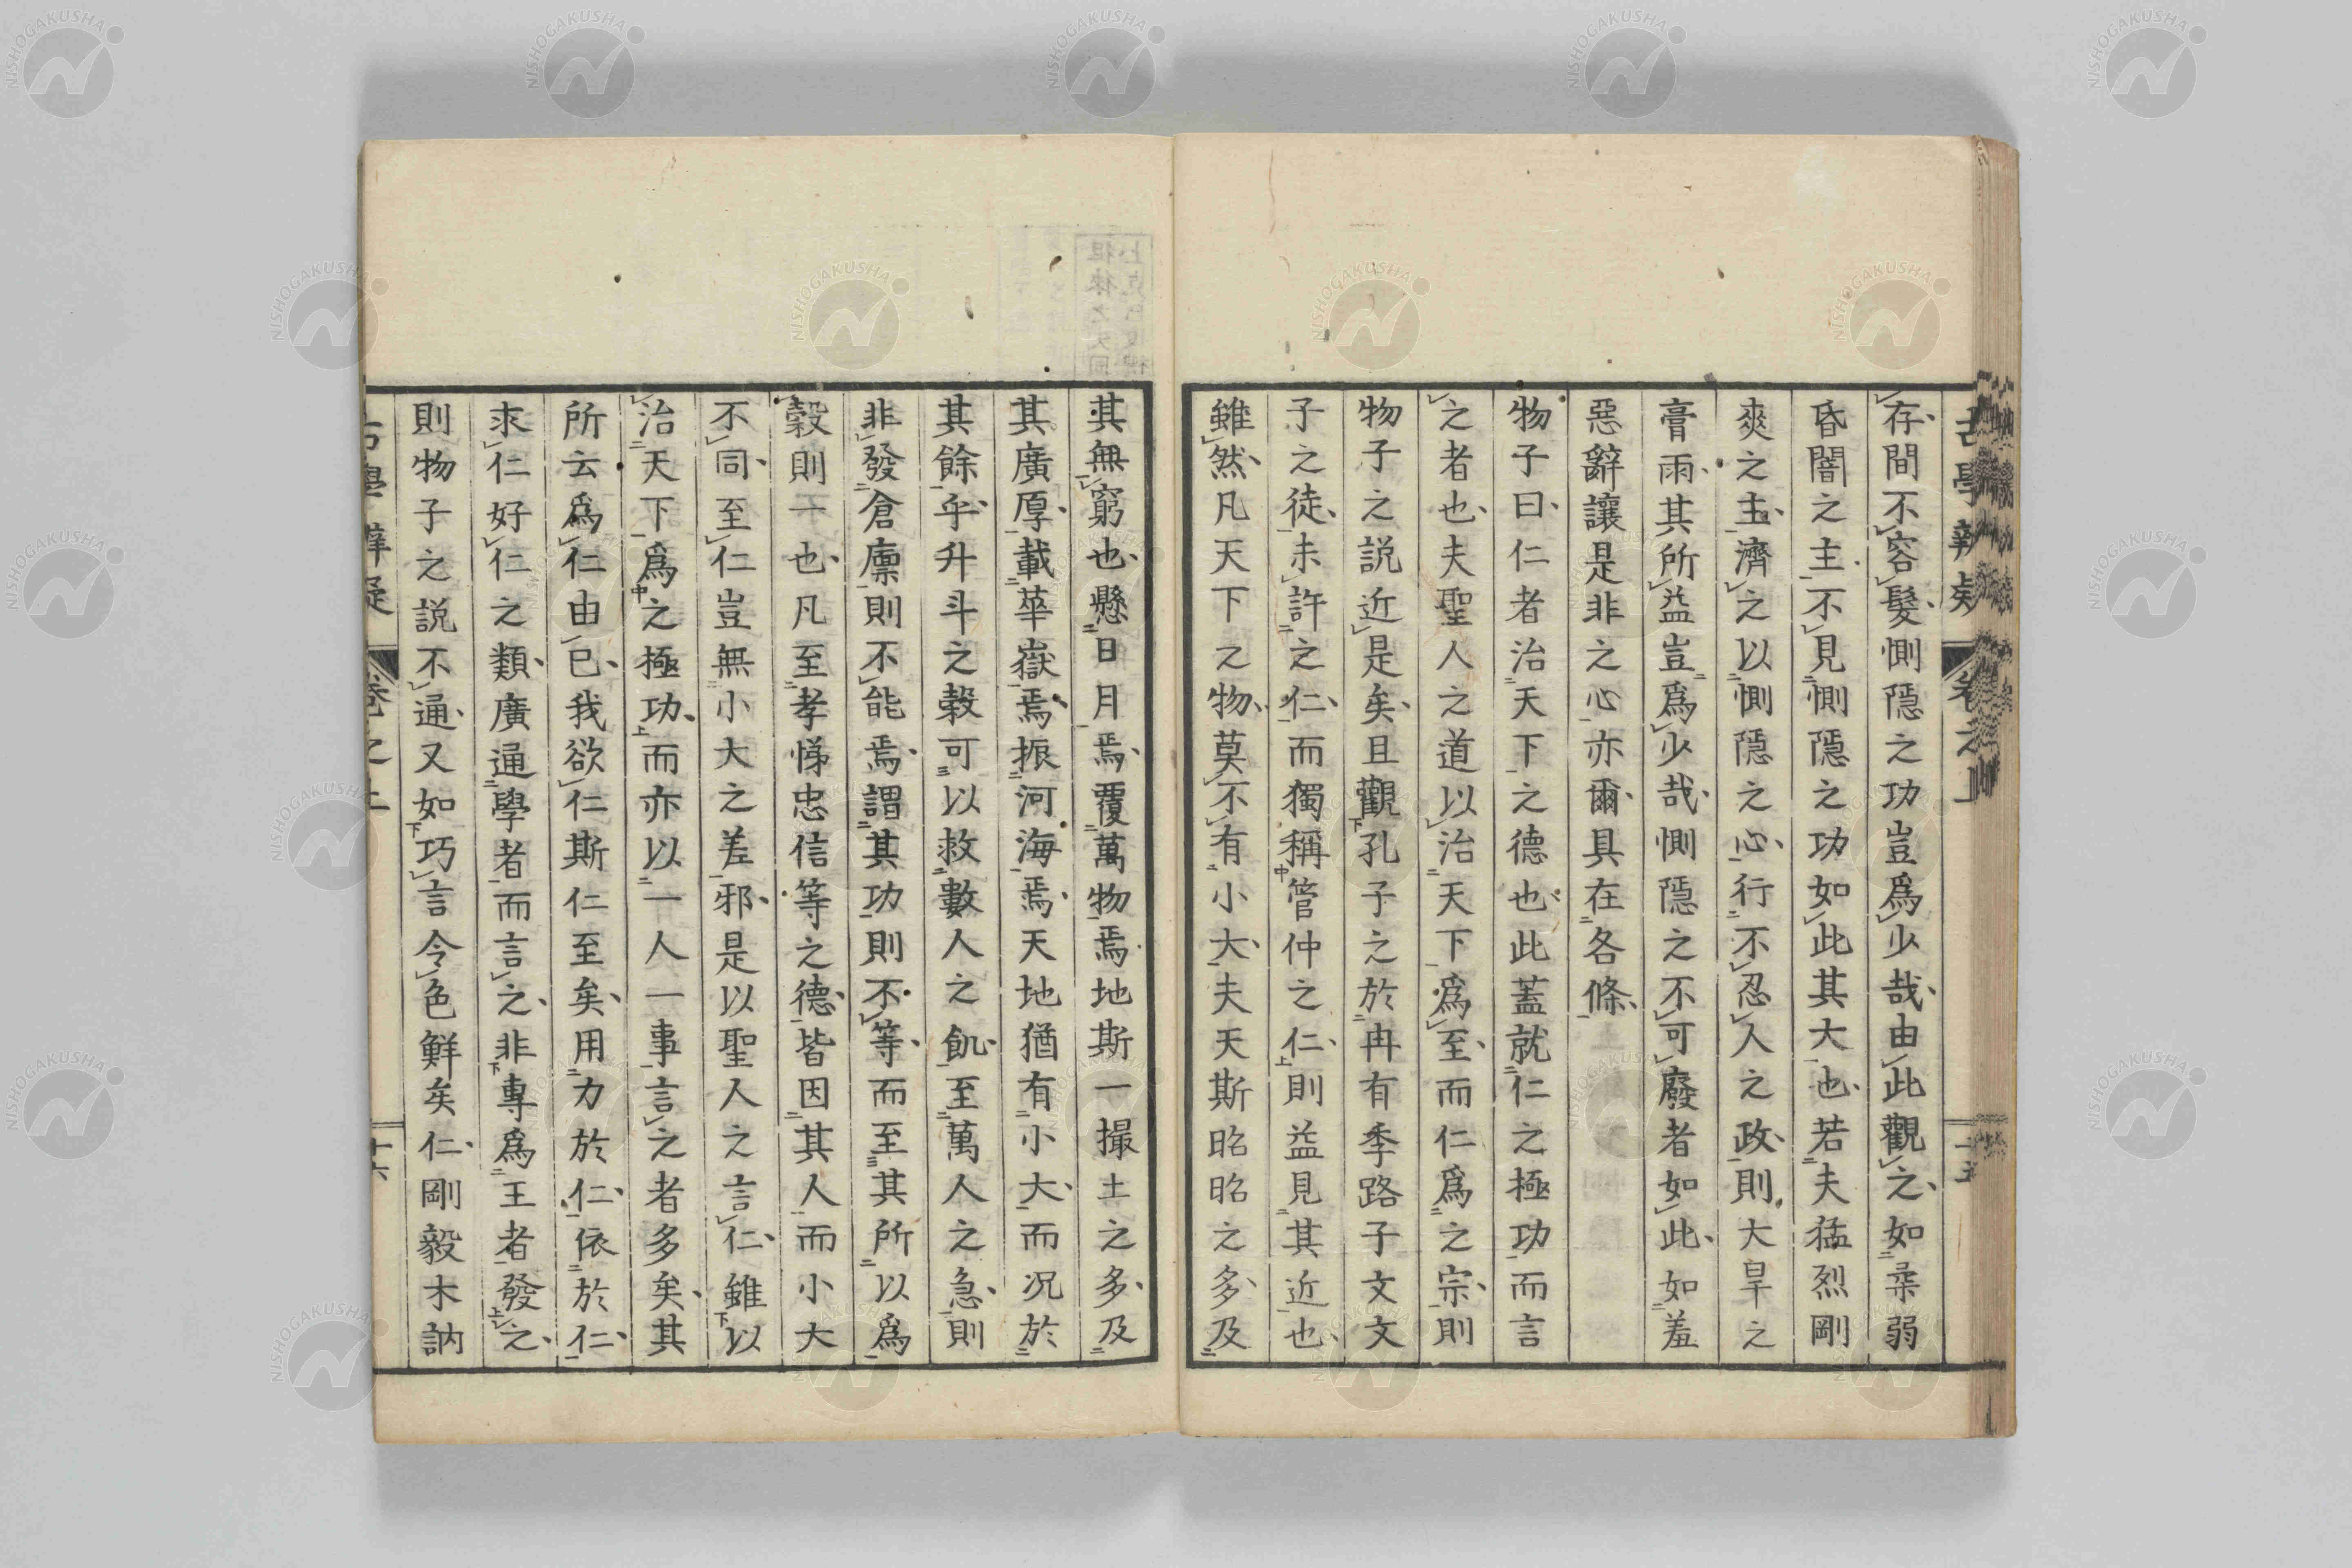 存間不容髮惻隠之功豈爲少哉由此觀之如柔弱
昏闇之主不見惻隠之功如此其大也若夫猛烈剛
爽之主濟之以惻隠之心行不忍人之政則大旱之
膏雨其所益豈爲少哉惻隠之不可廢者如此如羞
惡辭讓是非之心亦爾具在各條
物子曰仁者治天下之德也此蓋就仁之極功而言
之者也夫聖人之道以治天下爲至而仁爲之宗則
物子之説近是矣且觀孔子之於冉有季路子文文
子之徒未許之仁而獨稱管仲之仁則益見其近也
雖然凡天下之物莫不有小大夫天斯昭昭之多及
其無窮也懸日月焉覆萬物焉地斯一撮土之多及
其廣厚載華嶽焉振河海焉天地猶有小大而况於
其餘乎升斗之穀可以救數人之飢至萬人之急則
非發倉廩則不能焉謂其功則不等而至其所以爲
穀則一也凡至孝悌忠信等之德皆因其人而小大
不同至仁豈無小大之差邪是以聖人之言仁雖以
治天下爲之極功而亦以一人一事言之者多矣其
所云爲仁由已我欲仁斯仁至矣用力於仁依於仁
求仁好仁之類廣通學者而言之非專爲王者發之
則物子之説不通又如巧言令色鮮矣仁剛毅木訥
NISHOGAKUSHA